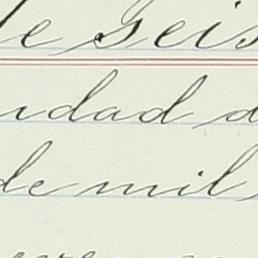 de seis
udad d
de mil